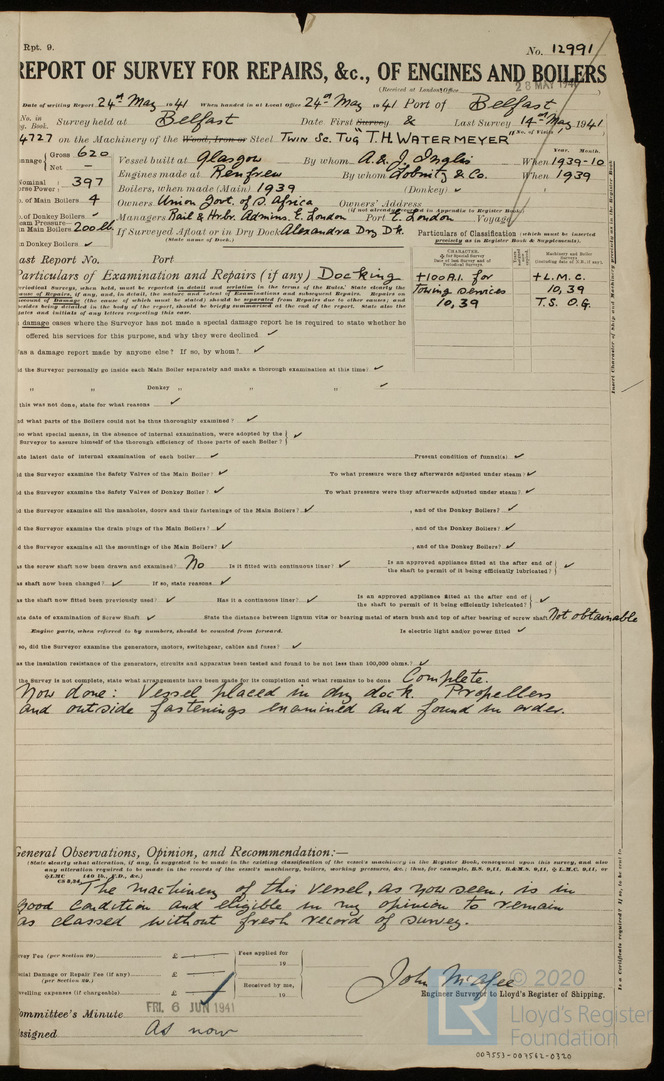 Rpt. 9.
No. 12991
REPORT OF SURVEY FOR REPAIRS, &c., OF ENGINES AND BOILERS
(Received at London Office
28 MAY 1941
Date of writing Report 24th May 1941 When handed in at Local Office 24th May 1941 Port of Belfast
No. in Survey held at Belfast Date First Survey & Last Survey 14th May 1941
g. Book.
(No. of Visits
4727 on the Machinery of the Wood, Iron or Steel Twin Sc. Tug "T. H. WATERMEYER"
onnage Gross 620
Net —
Vessel built at Glasgow By whom A. & J. Inglis When 1939-10
Year. Month.
Engines made at Renfrew By whom Lobnitz & Co. When 1939
ominal 397
orse Power
Boilers, when made (Main) 1939 (Donkey) ✓
o. of Main Boilers 4
Owners Union Govt. of S. Africa Owners' Address
(if not already recorded in Appendix to Register Book.)
o. of Donkey Boilers ✓
Managers Rail & Hrbr. Admins. E. London Port E. London Voyage
eam Pressure—
n Main Boilers 200 lb
If Surveyed Afloat or in Dry Dock Alexandra Dry Dk.
(State name of Dock.)
n Donkey Boilers ✓
Particulars of Classification (which must be inserted
precisely as in Register Book & Supplements).
CHARACTER.
Machinery and Boiler
Surveys
+100A1. for
Towing Services
10,39
+L.M.C.
10,39
T.S. O.G.
ast Report No. Port
Particulars of Examination and Repairs (if any) Docking
damage cases where the Surveyor has not made a special damage report he is required to state whether he
offered his services for this purpose, and why they were declined ✓
as a damage report made by anyone else? If so, by whom? ✓
id the Surveyor personally go inside each Main Boiler separately and make a thorough examination at this time? ✓
„ „ Donkey „ „ „ ✓
this was not done, state for what reasons ✓
nd what parts of the Boilers could not be thus thoroughly examined? ✓
so what special means, in the absence of internal examination, were adopted by the
Surveyor to assure himself of the thorough efficiency of those parts of each Boiler? ✓
tate latest date of internal examination of each boiler Present condition of funnel(s) ✓
id the Surveyor examine the Safety Valves of the Main Boiler? ✓ To what pressure were they afterwards adjusted under steam? ✓
id the Surveyor examine the Safety Valves of Donkey Boiler? ✓ To what pressure were they afterwards adjusted under steam? ✓
id the Surveyor examine all the manholes, doors and their fastenings of the Main Boilers? ✓ , and of the Donkey Boilers? ✓
id the Surveyor examine the drain plugs of the Main Boilers? ✓ , and of the Donkey Boilers? ✓
id the Surveyor examine all the mountings of the Main Boilers? ✓ , and of the Donkey Boilers? ✓
as the screw shaft now been drawn and examined? No Is it fitted with continuous liner? ✓ Is an approved appliance fitted at the after end of
the shaft to permit of it being efficiently lubricated? ✓
as shaft now been changed? ✓ If so, state reasons ✓
as the shaft now fitted been previously used? ✓ Has it a continuous liner? ✓ Is an approved appliance fitted at the after end of
the shaft to permit of it being efficiently lubricated? ✓
tate date of examination of Screw Shaft ✓ State the distance between lignum vitæ or bearing metal of stern bush and top of after bearing of screw shaft Not obtainable
Engine parts, when referred to by numbers, should be counted from forward. Is electric light and/or power fitted ✓
so, did the Surveyor examine the generators, motors, switchgear, cables and fuses? ✓
as the insulation resistance of the generators, circuits and apparatus been tested and found to be not less than 100,000 ohms? ✓
the Survey is not complete, state what arrangements have been made for its completion and what remains to be done Complete.
Now done: Vessel placed in dry dock. Propellers
and outside fastenings examined and found in order.
General Observations, Opinion, and Recommendation:—
(State clearly what alteration, if any, is suggested to be made in the existing classification of the vessel's machinery in the Register Book, consequent upon this survey, and also
any alteration required to be made in the records of the vessel's machinery, boilers, working pressures, &c.; thus, for example, B.S. 9,11, B.&M.S. 9,11, L.M.C. 9,11, or
The machinery of this vessel, as now seen, is in
good condition and eligible in my opinion to remain
as classed without fresh record of survey.
rvey Fee (per Section 29) £ Fees applied for
19
cial Damage or Repair Fee (if any) £
(per Section 29.)
Received by me,
velling expenses (if chargeable) £ 19
John McAfee
Engineer Surveyor to Lloyd's Register of Shipping.
ommittee's Minute FRI. 6 JUN 1941
ssigned As now
© 2020
LR
Lloyd's Register
Foundation
007553-007562-0320